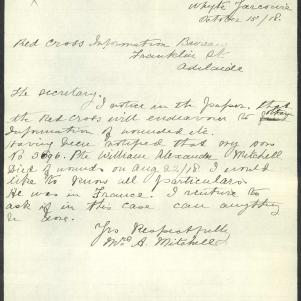 Whyte Yarcowie
October 15/18.
Red Cross Information Bureau
Franklin St
Adelaide
The Secretary,
I notice in the papers that
the Red Cross will endeavour to
Information of wounded etc.
Having been notified that my son
Pte William Alexander Mitchell
Died of wounds on Aug 22/18 I would
like to know all particulars
He was in France. I venture to
ask if in this case can anything
be done.
Yrs Respectfully
Mrs A. Mitchell